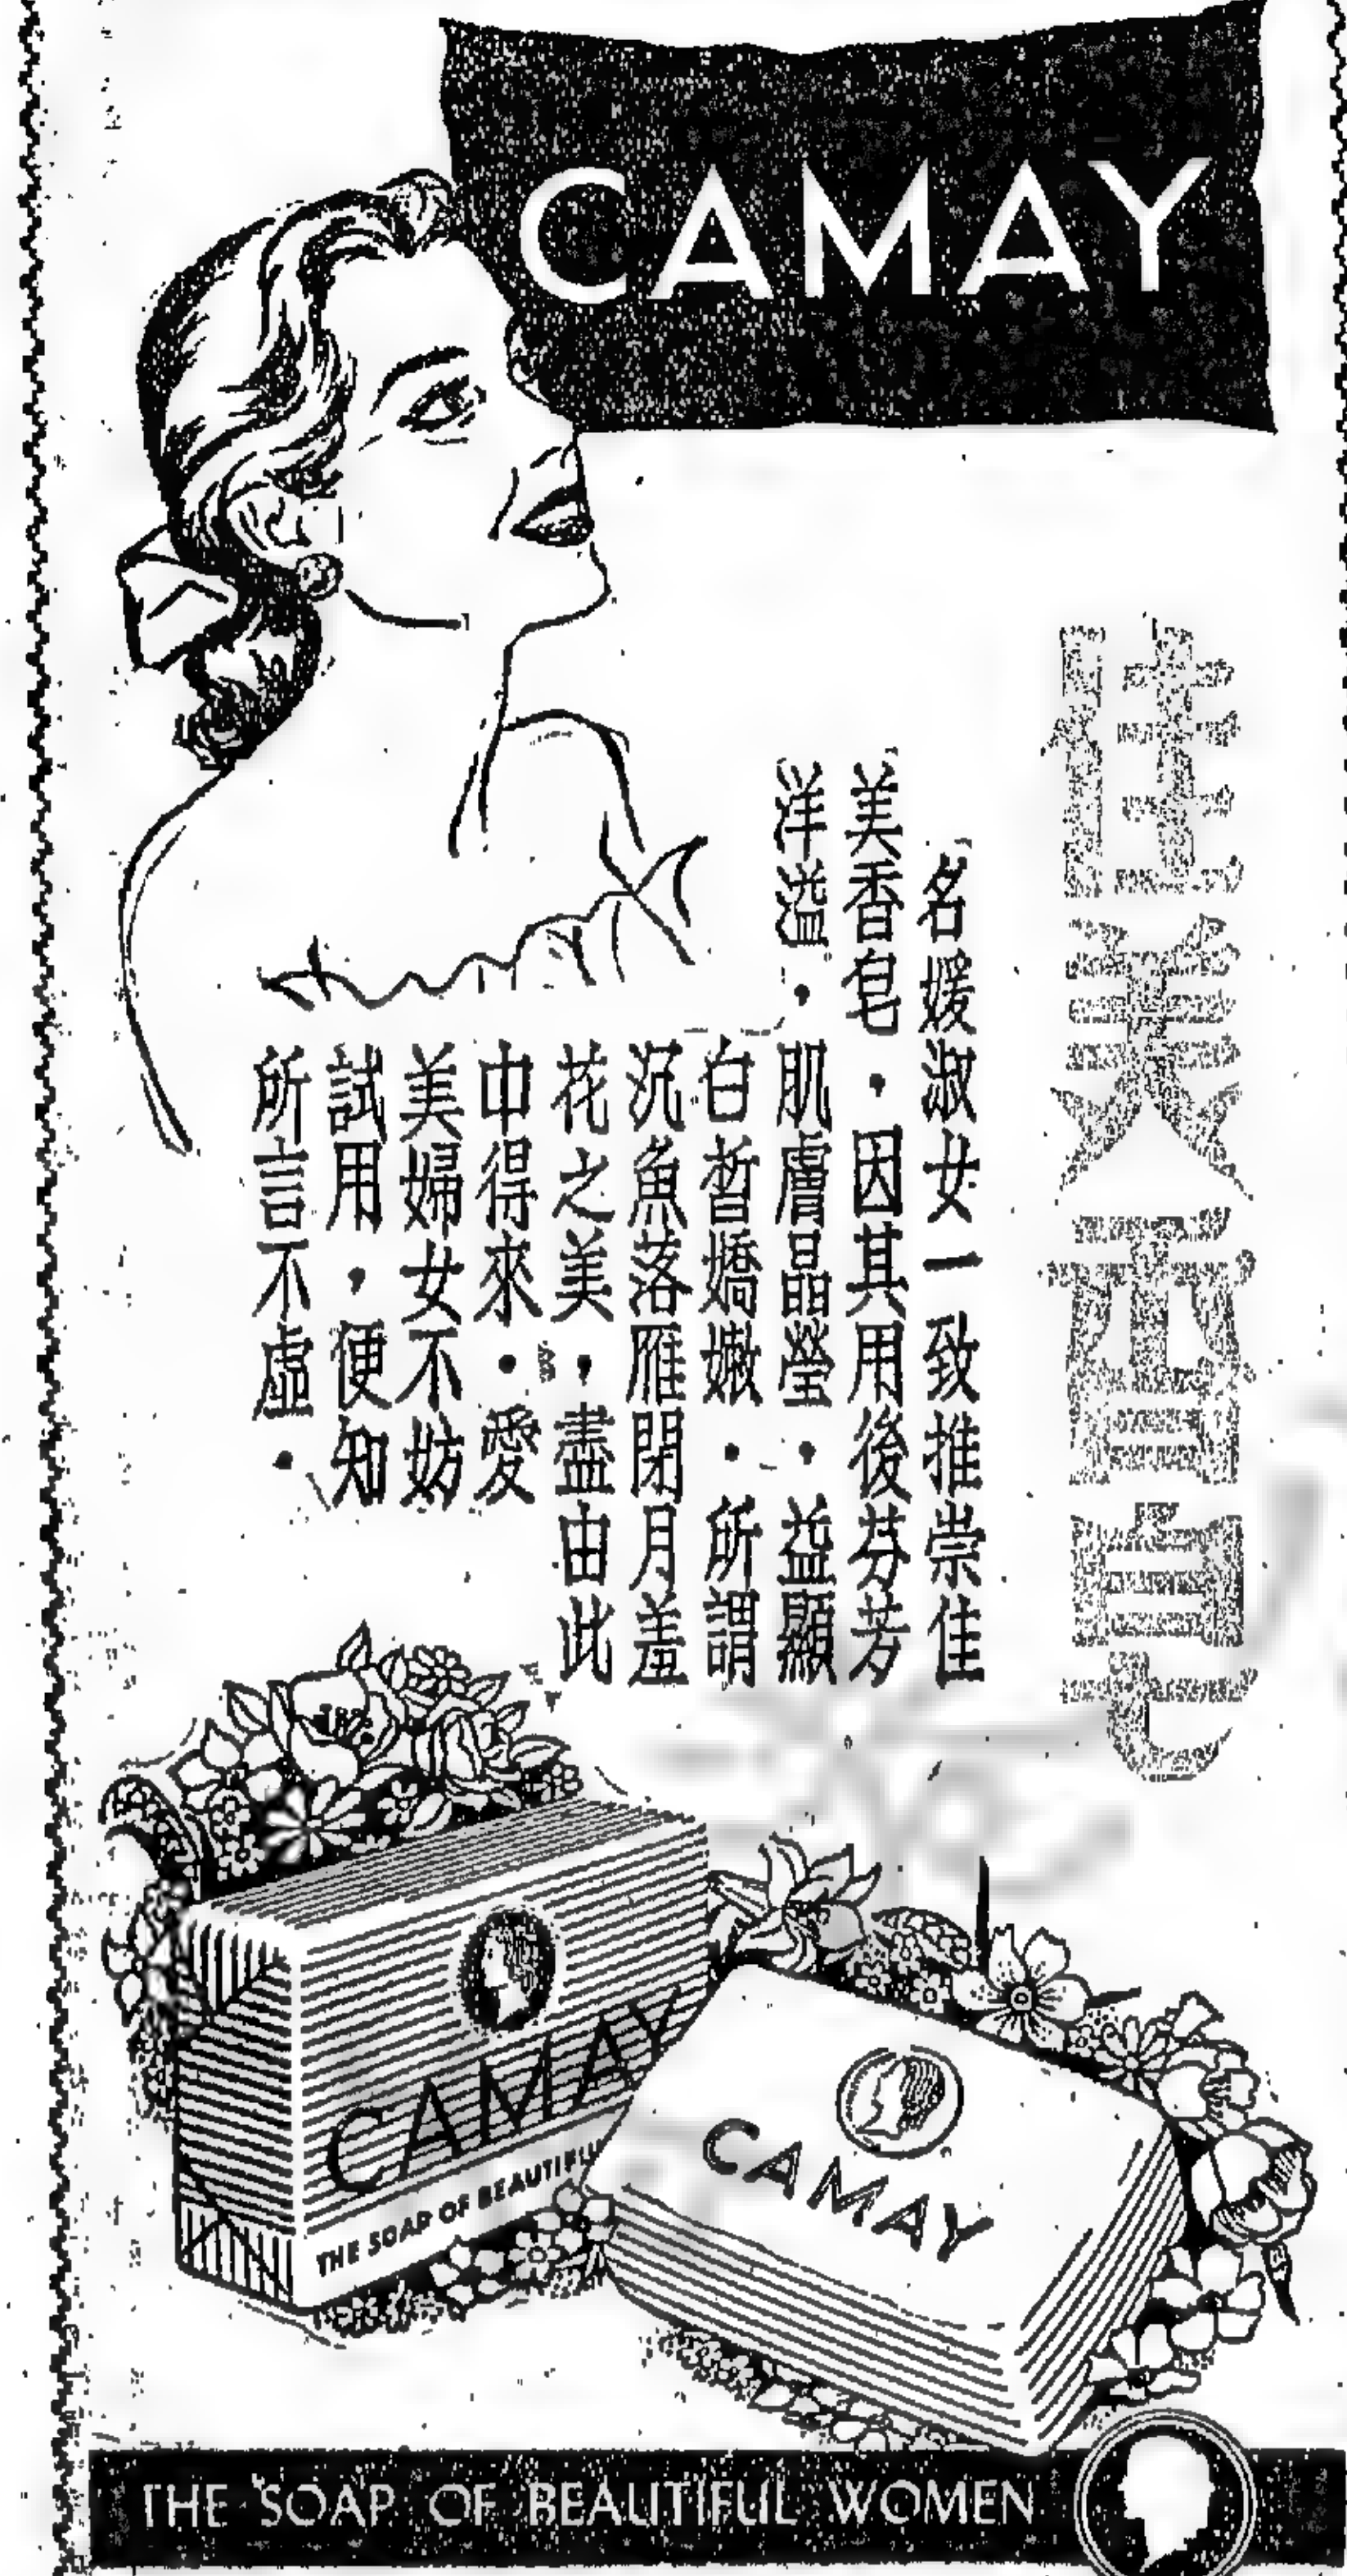 CAMAY
佳美香皂
名媛淑女一致推崇佳
美香皂・因其用後芬芳
洋溢・肌膚晶瑩・益顯
白皙嬌嫩・所謂
沉魚落雁閉月羞
花之美，盡由此
中得來・愛
美婦女不妨
試用，便知
所言不虛・
CAMAY
THE SOAP OF BEAUTIFUL
CAMAY
THE SOAP OF BEAUTIFUL WOMEN